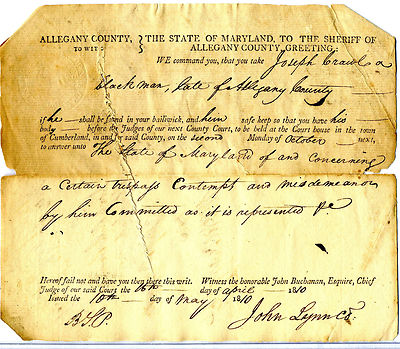 ALLEGANY COUNTY, } THE STATE OF MARYLAND, TO THE SHERIFF OF
TO WIT: } ALLEGANY COUNTY, GREETING:
WE command you, that you take Joseph Crawl a
black man late of Allegany County
if he shall be found in your bailiwick, and him safe keep so that you have his
body before the Judges of our next County Court, to be held at the Court house in the town
of Cumberland, in and for said County, on the second Monday of October next,
to answer unto The State of Maryland of and concerning
a Certain trespass Contempt and misdemeanor
by him Committed as it is represented &c
Hereof fail not and have you then there this writ. Witness the honorable John Buchanan, Esquire, Chief
Judge of our said Court the day of april 1810
Issued the 10th day of May 1810
John Lynn Ck